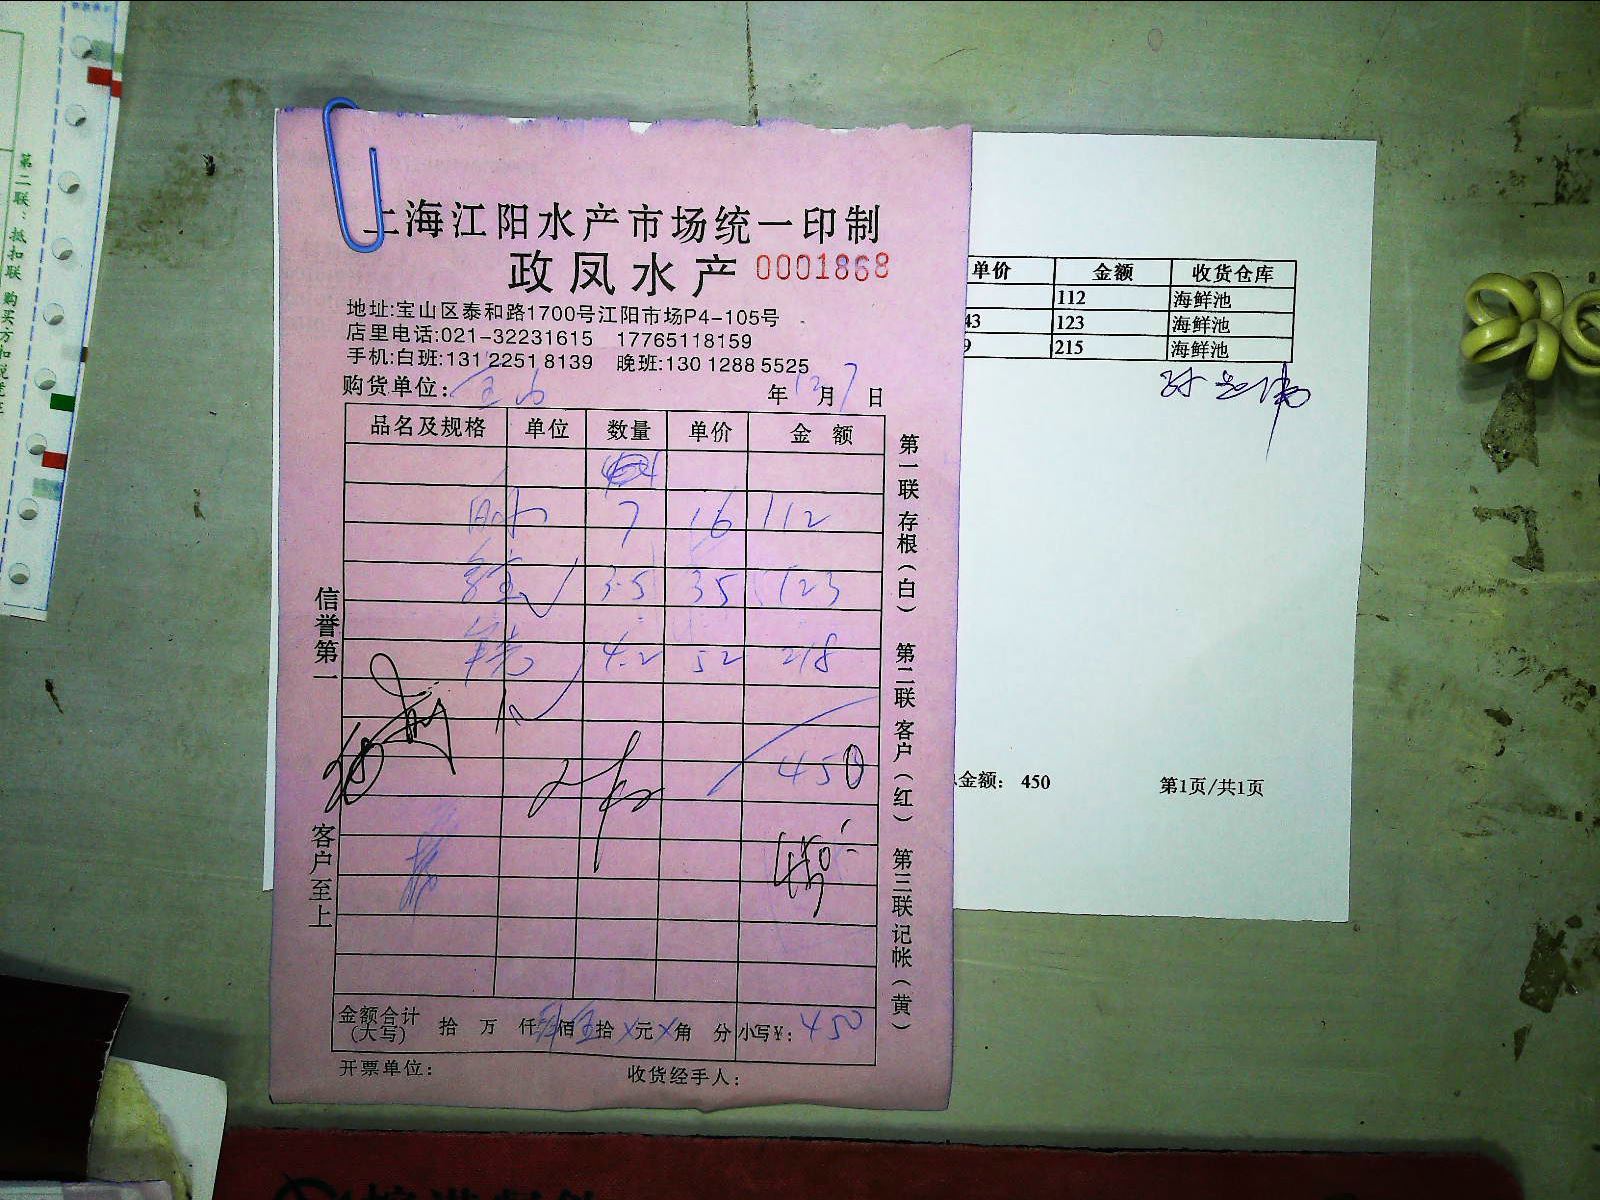 上海江阳水产市场统一印制
政凤水产 0001868
地址:宝山区泰和路1700号江阳市场P4-105号
店里电话:021-32231615 17765118159
手机:白班:131 2251 8139 晚班:130 1288 5525
购货单位: 宝山 年12月7日
品名及规格 单位 数量 单价 金额
7 16 112
3.5 35 123
4.2 52 218
450
450
金额合计(大写) 拾 万 仟 肆佰伍拾X元X角 分 小写¥: 450
开票单位: 收货经手人:
信誉第一 客户至上
第一联 存根(白) 第二联 客户(红) 第三联 记帐(黄)
单价 金额 收货仓库
112 海鲜池
43 123 海鲜池
9 215 海鲜池
金额: 450 第1页/共1页
第二联:抵扣联 购买方扣税凭证